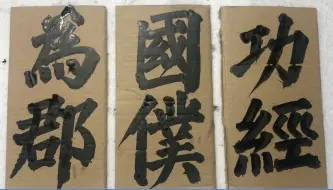 功經
國僕
為郡